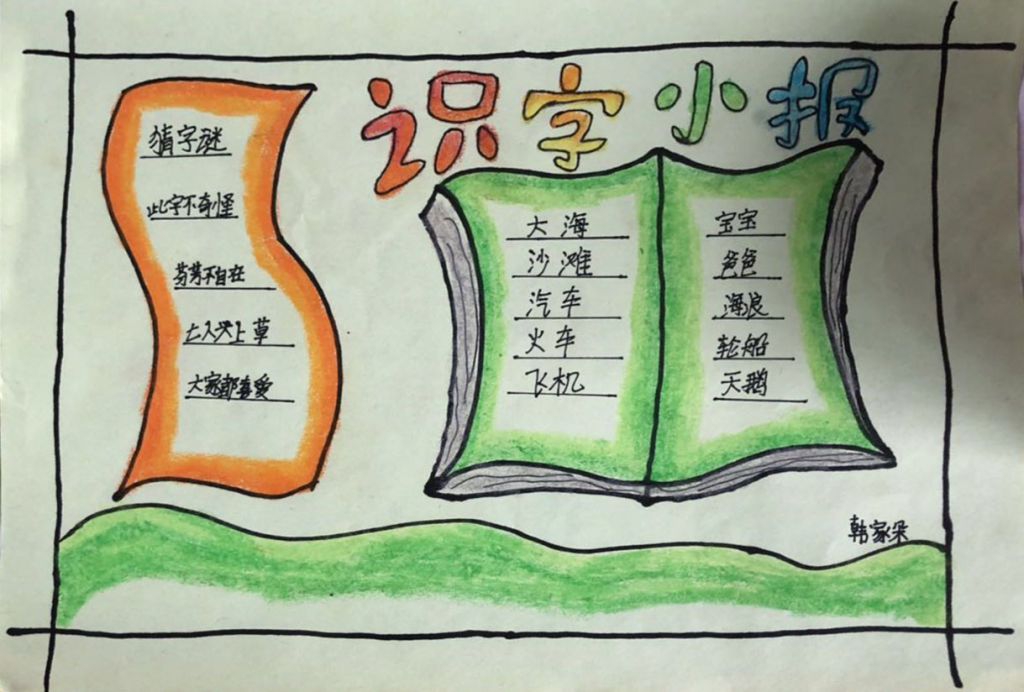 识字小报
猜字谜
此字不奇怪
芬芳不自在
七人头上草
大家都喜爱
大海
沙滩
汽车
火车
飞机
宝宝
爸爸
海浪
轮船
天鹅
韩家朵